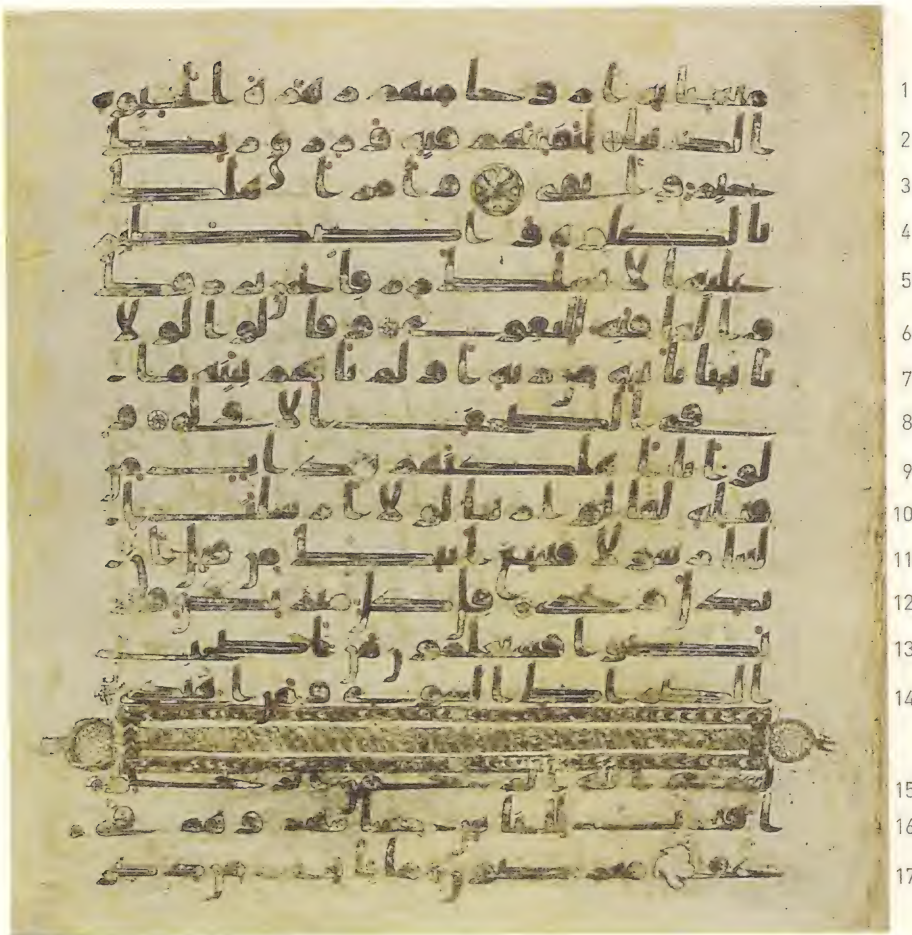 متعنا به ازوجا منهم زهرة الحيوة
الدنيا لنفتنهم فيه ورزق ربك
خير وابقى وامر اهلك
بالصلوة واصطبر
عليها لا نسلك رزقا نحن نرزقك وا
لعقبة للتقوى وقالوا لولا
ياتينا باية من ربه اولم تاتهم بينة ما
في الصحف الاولى و
لو انا اهلكنهم بعذاب من
قبله لقالوا ربنا لولا ارسلت ا
لينا رسولا فنتبع ايتك من قبل ا
ن نذل ونخزى قل كل متربص فتر
بصوا فستعلمون من اصحب
الصرط السوى ومن اهتدى
بسم الله الرحمن الرحيم
اقترب للناس حسابهم وهم في
غفلة معرضون ما ياتيهم من ذكر
1
2
3
4
5
6
7
8
9
10
11
12
13
14
15
16
17